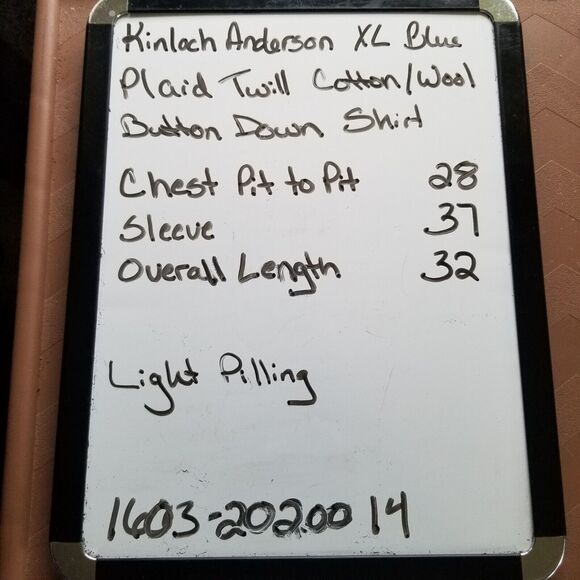 Kinloch Anderson XL Blue
Plaid Twill Cotton/Wool
Button Down Shirt
Chest Pit to Pit 28
Sleeve 37
Overall Length 32
Light Pilling
1603-202.00 14